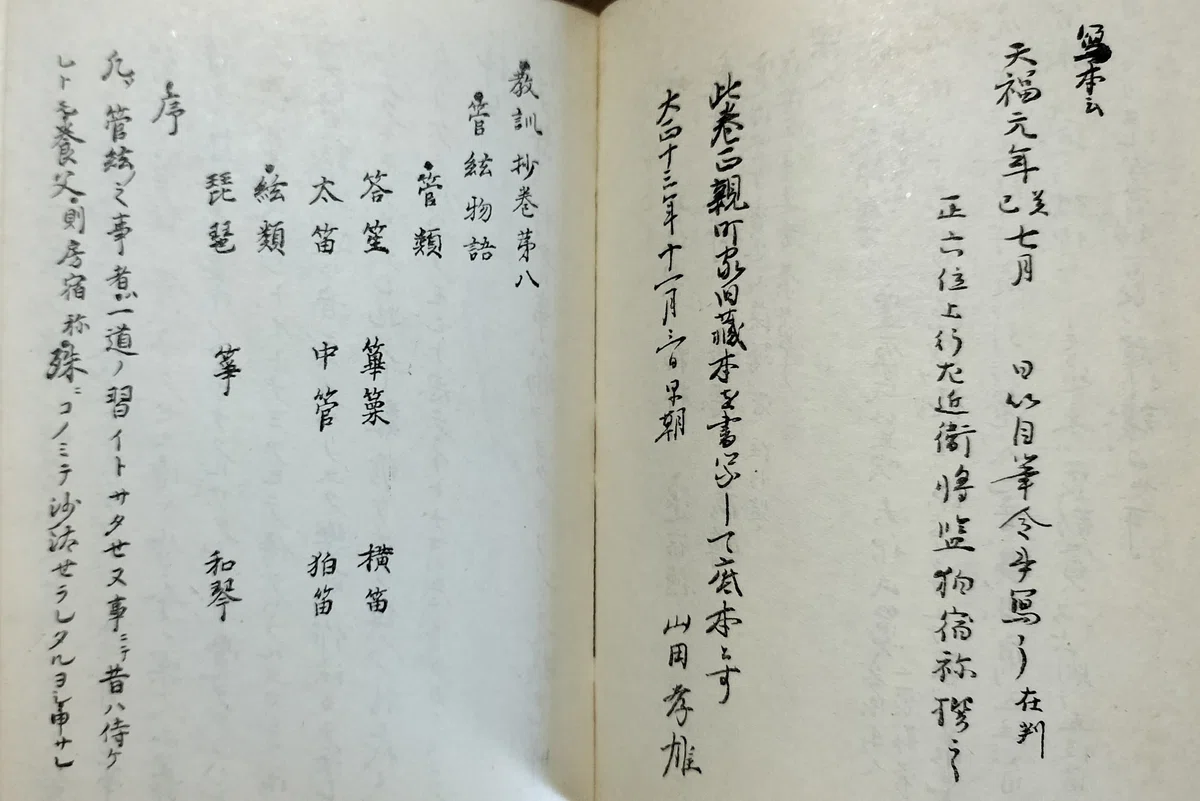 写本云
天福元年癸巳七月 日以自筆令書写了 在判
正六位上行左近衛将監狛宿祢撰之
此巻正親町家旧蔵本を書写して底本とす
大正十三年十一月三日早朝 山田孝雄
教訓抄巻第八
管絃物語
管類
答笙 篳篥 横笛
太笛 中管 狛笛
絃類
琵琶 箏 和琴
序
凡ソ管絃之事者一道ノ習イトサタセヌ事ニテ昔ハ侍ケ
レトモ養父則房宿祢殊ニコノミテ沙汰せラレタルヨシ申サレ